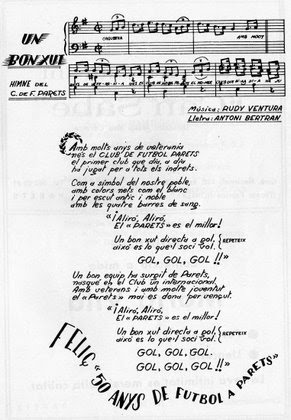 UN
BON XUT
HIMNE DEL
C. DE F. PARETS
Música: RUDY VENTURA
Lletra: ANTONI BERTRAN
Amb molts anys de veterania
és el CLUB DE FUTBOL PARETS
el primer club que, dia, a dia
ha jugat per a tots els indrets.
Com a símbol del nostre poble,
amb colors nets com el blanc
i per escut antic i noble
amb les quatre barres de sang.
¡Aliró, Aliró,
El «PARETS» es el millor!
Un bon xut directa a gol,
això es lo que'l soci vol. REPETEIX
GOL, GOL, GOL !!
Un bon equip ha surgit de Parets,
nasqué en el Club un internacional.
Amb veterans i amb molta joventut
el «Parets» mai es dona per vençut.
¡Aliró, Aliró,
El «PARETS» es el millor!
Un bon xut directa a gol,
això es lo que'l soci vol. REPETEIX
GOL, GOL, GOL.
GOL, GOL, GOL !!
FELIÇ «50 ANYS DE FUTBOL A PARETS»